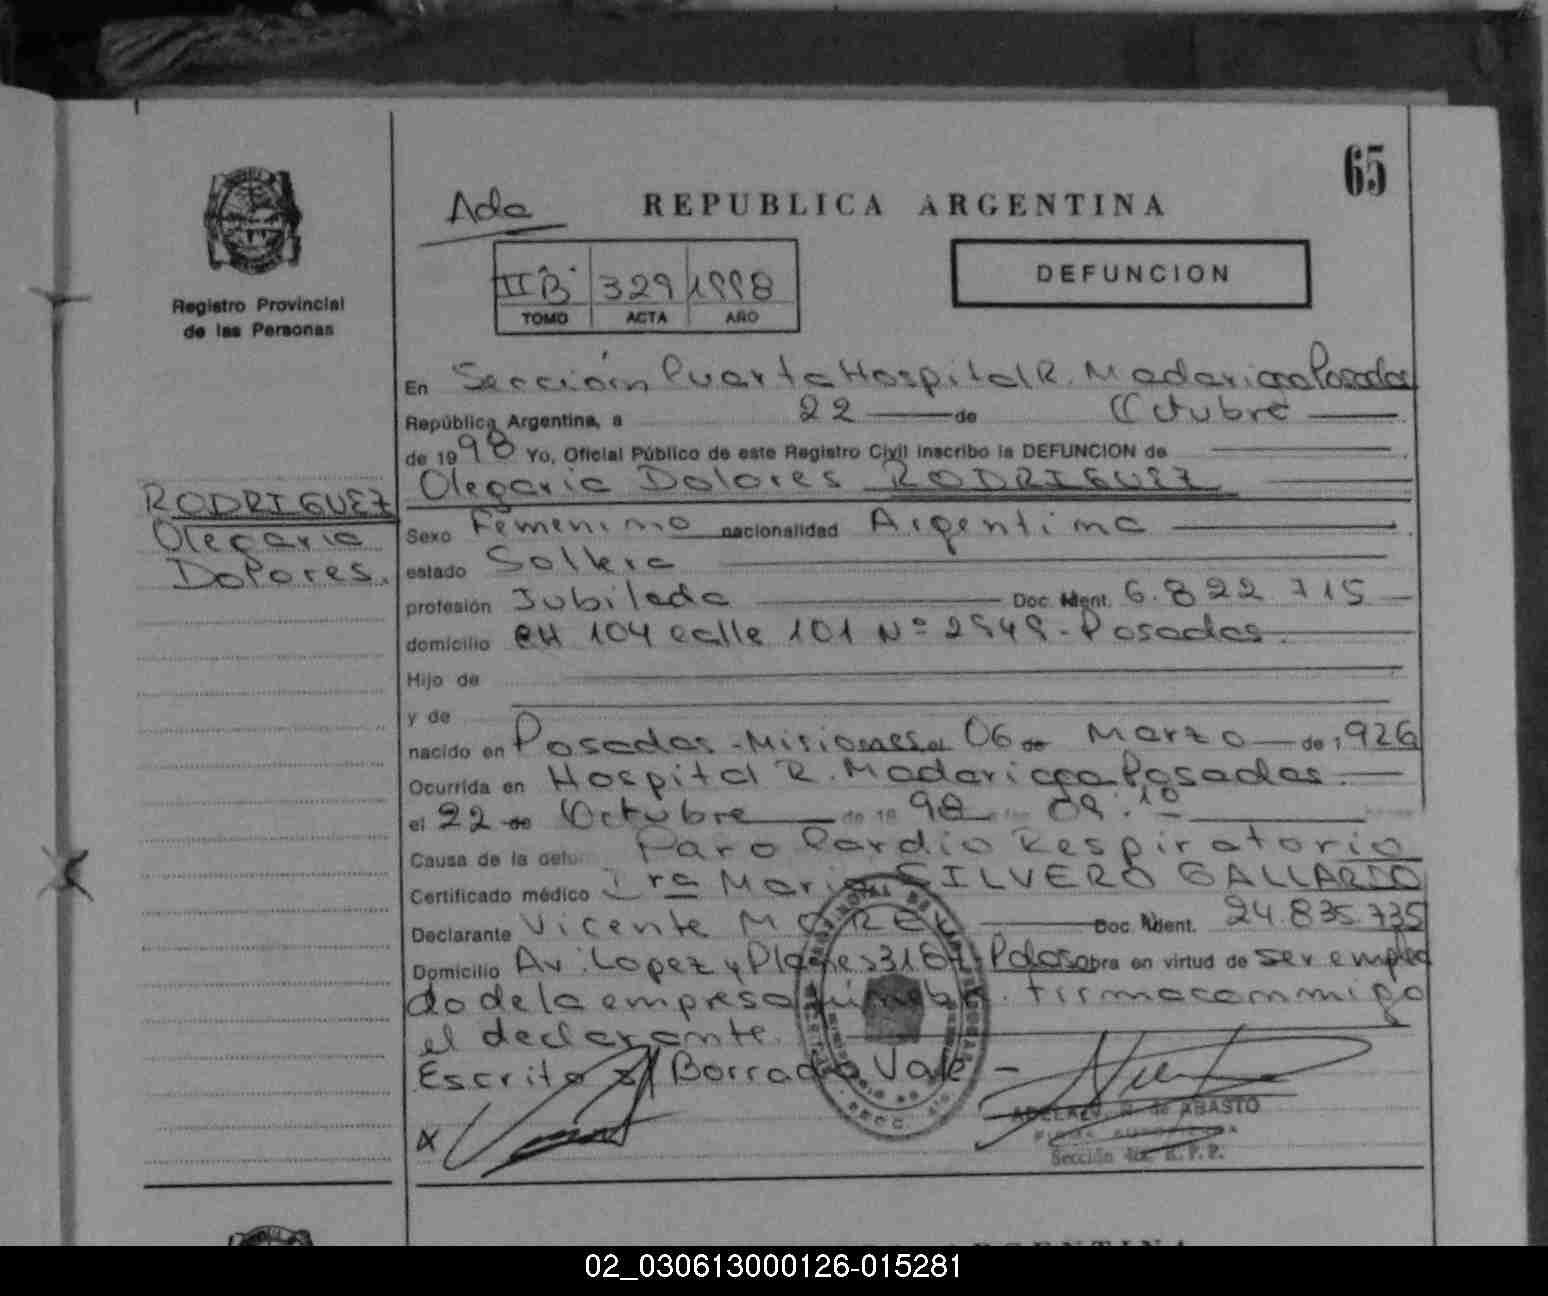 65
Ada
REPUBLICA ARGENTINA
II "B" 329 1998
TOMO ACTA AÑO
DEFUNCION
Registro Provincial
de las Personas
En Sección Cuarta Hospital R. Madariaga Posadas
República Argentina, a 22 de Octubre
de 1998 Yo, Oficial Público de este Registro Civil inscribo la DEFUNCION de
Olegaria Dolores RODRIGUEZ
RODRIGUEZ
Olegaria
Dolores.
Sexo Femenino nacionalidad Argentina
estado Soltera
profesión Jubilada Doc. Ident. 6.822.715
domicilio CH 104 calle 101 Nº 2949 - Posadas.
Hijo de
y de
nacido en Posadas - Misiones el 06 de Marzo de 1926
Ocurrida en Hospital R. Madariaga Posadas
el 22 de Octubre de 1998 09:10
Causa de la defun Paro Cardio Respiratorio
Certificado médico Dra Maria SILVERO GALLARDO
Declarante Vicente MOREL Doc. Ident. 24.835.735
Domicilio Av. Lopez y Planes 3167 Pdas obra en virtud de ser emplea
do de la empresa fúnebre. firma conmigo
el declarante.
Escrito s/ Borrado Vale -
x
ADELAZO. R. de ABASTO
Sección 4ta. R. P. P.
ARGENTINA
02_030613000126-015281